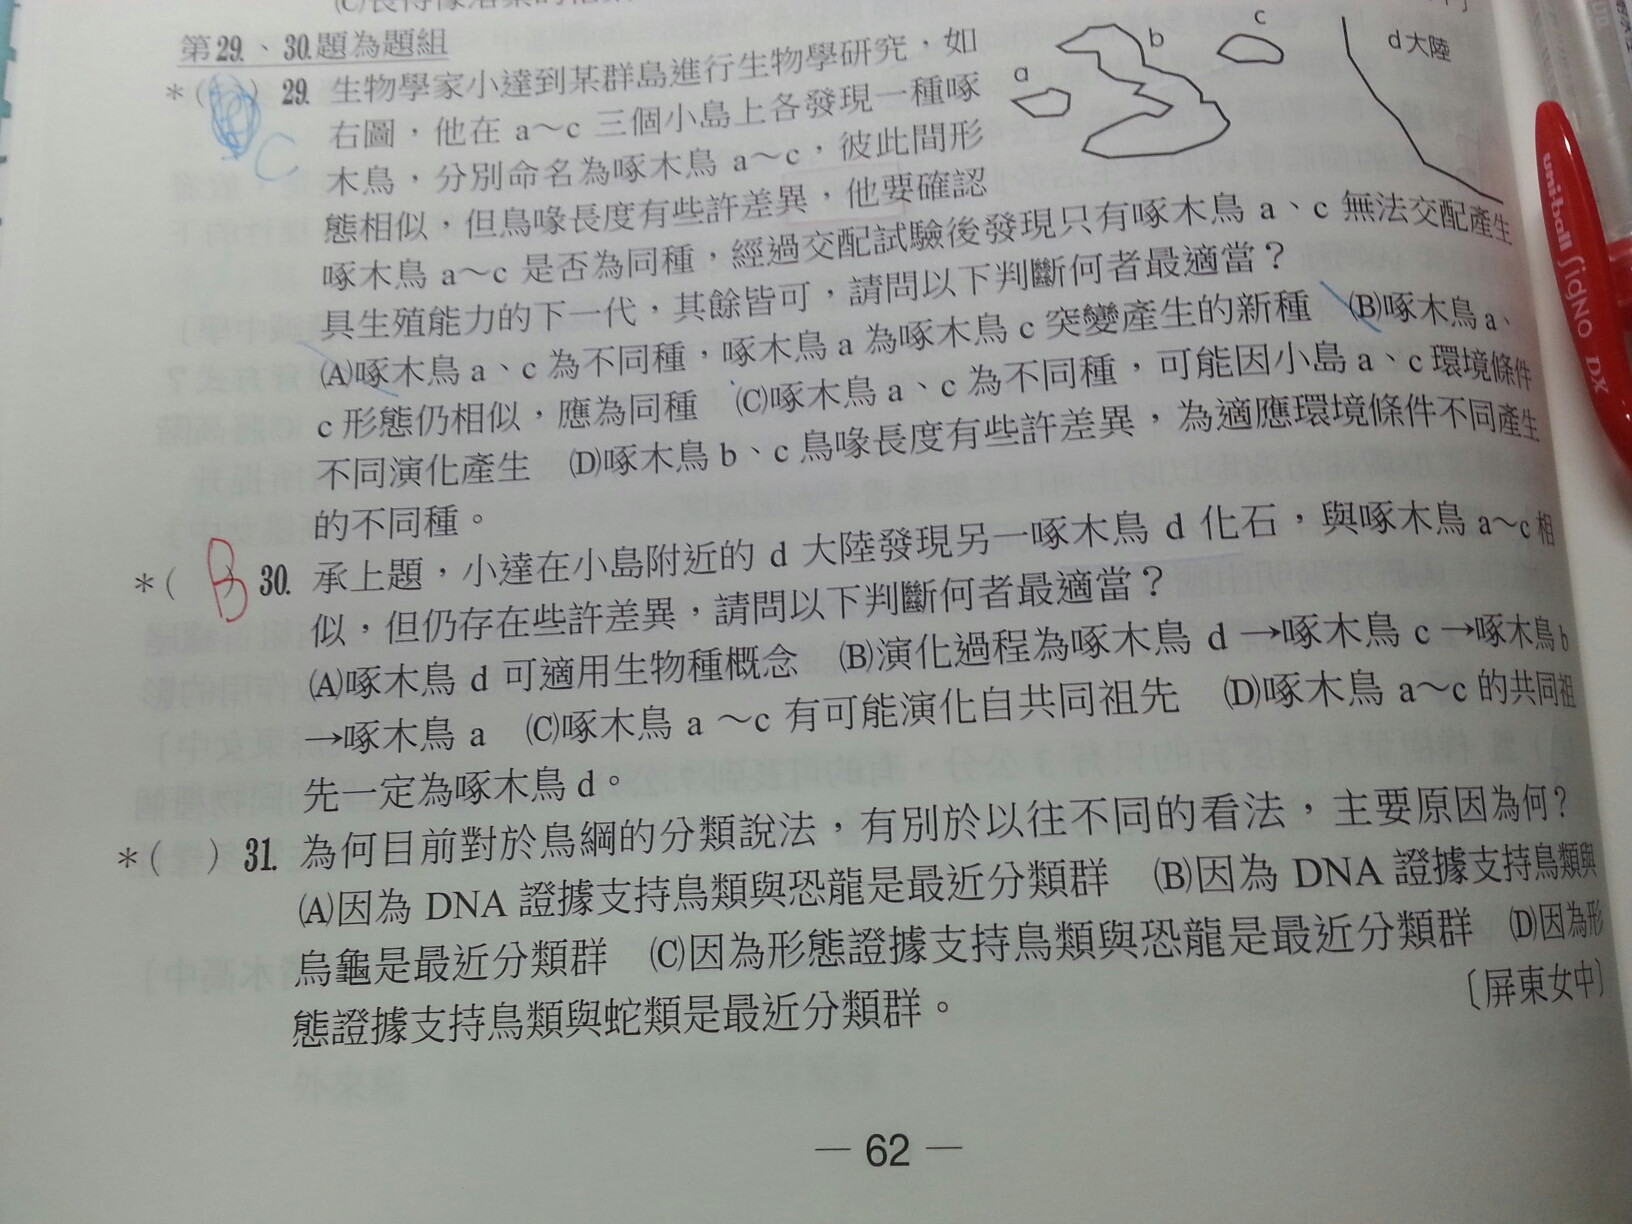 第29.、30.題為題組
*( ) 29. 生物學家小達到某群島進行生物學研究，如
右圖，他在 a～c 三個小島上各發現一種啄
木鳥，分別命名為啄木鳥 a～c，彼此間形
態相似，但鳥喙長度有些許差異，他要確認
啄木鳥 a～c 是否為同種，經過交配試驗後發現只有啄木鳥 a、c 無法交配產生
具生殖能力的下一代，其餘皆可，請問以下判斷何者最適當？
(A)啄木鳥 a、c 為不同種，啄木鳥 a 為啄木鳥 c 突變產生的新種 (B)啄木鳥 a、
c 形態仍相似，應為同種 (C)啄木鳥 a、c 為不同種，可能因小島 a、c 環境條件
不同演化產生 (D)啄木鳥 b、c 鳥喙長度有些許差異，為適應環境條件不同產生
的不同種。
C
a
b
c
d大陸
*( B ) 30. 承上題，小達在小島附近的 d 大陸發現另一啄木鳥 d 化石，與啄木鳥 a～c 相
似，但仍存在些許差異，請問以下判斷何者最適當？
(A)啄木鳥 d 可適用生物種概念 (B)演化過程為啄木鳥 d →啄木鳥 c →啄木鳥 b
→啄木鳥 a (C)啄木鳥 a ～c 有可能演化自共同祖先 (D)啄木鳥 a～c 的共同祖
先一定為啄木鳥 d。
*( ) 31. 為何目前對於鳥綱的分類說法，有別於以往不同的看法，主要原因為何？
(A)因為 DNA 證據支持鳥類與恐龍是最近分類群 (B)因為 DNA 證據支持鳥類與
烏龜是最近分類群 (C)因為形態證據支持鳥類與恐龍是最近分類群 (D)因為形
態證據支持鳥類與蛇類是最近分類群。
〔屏東女中〕
— 62 —
uni-ball SigNO DX